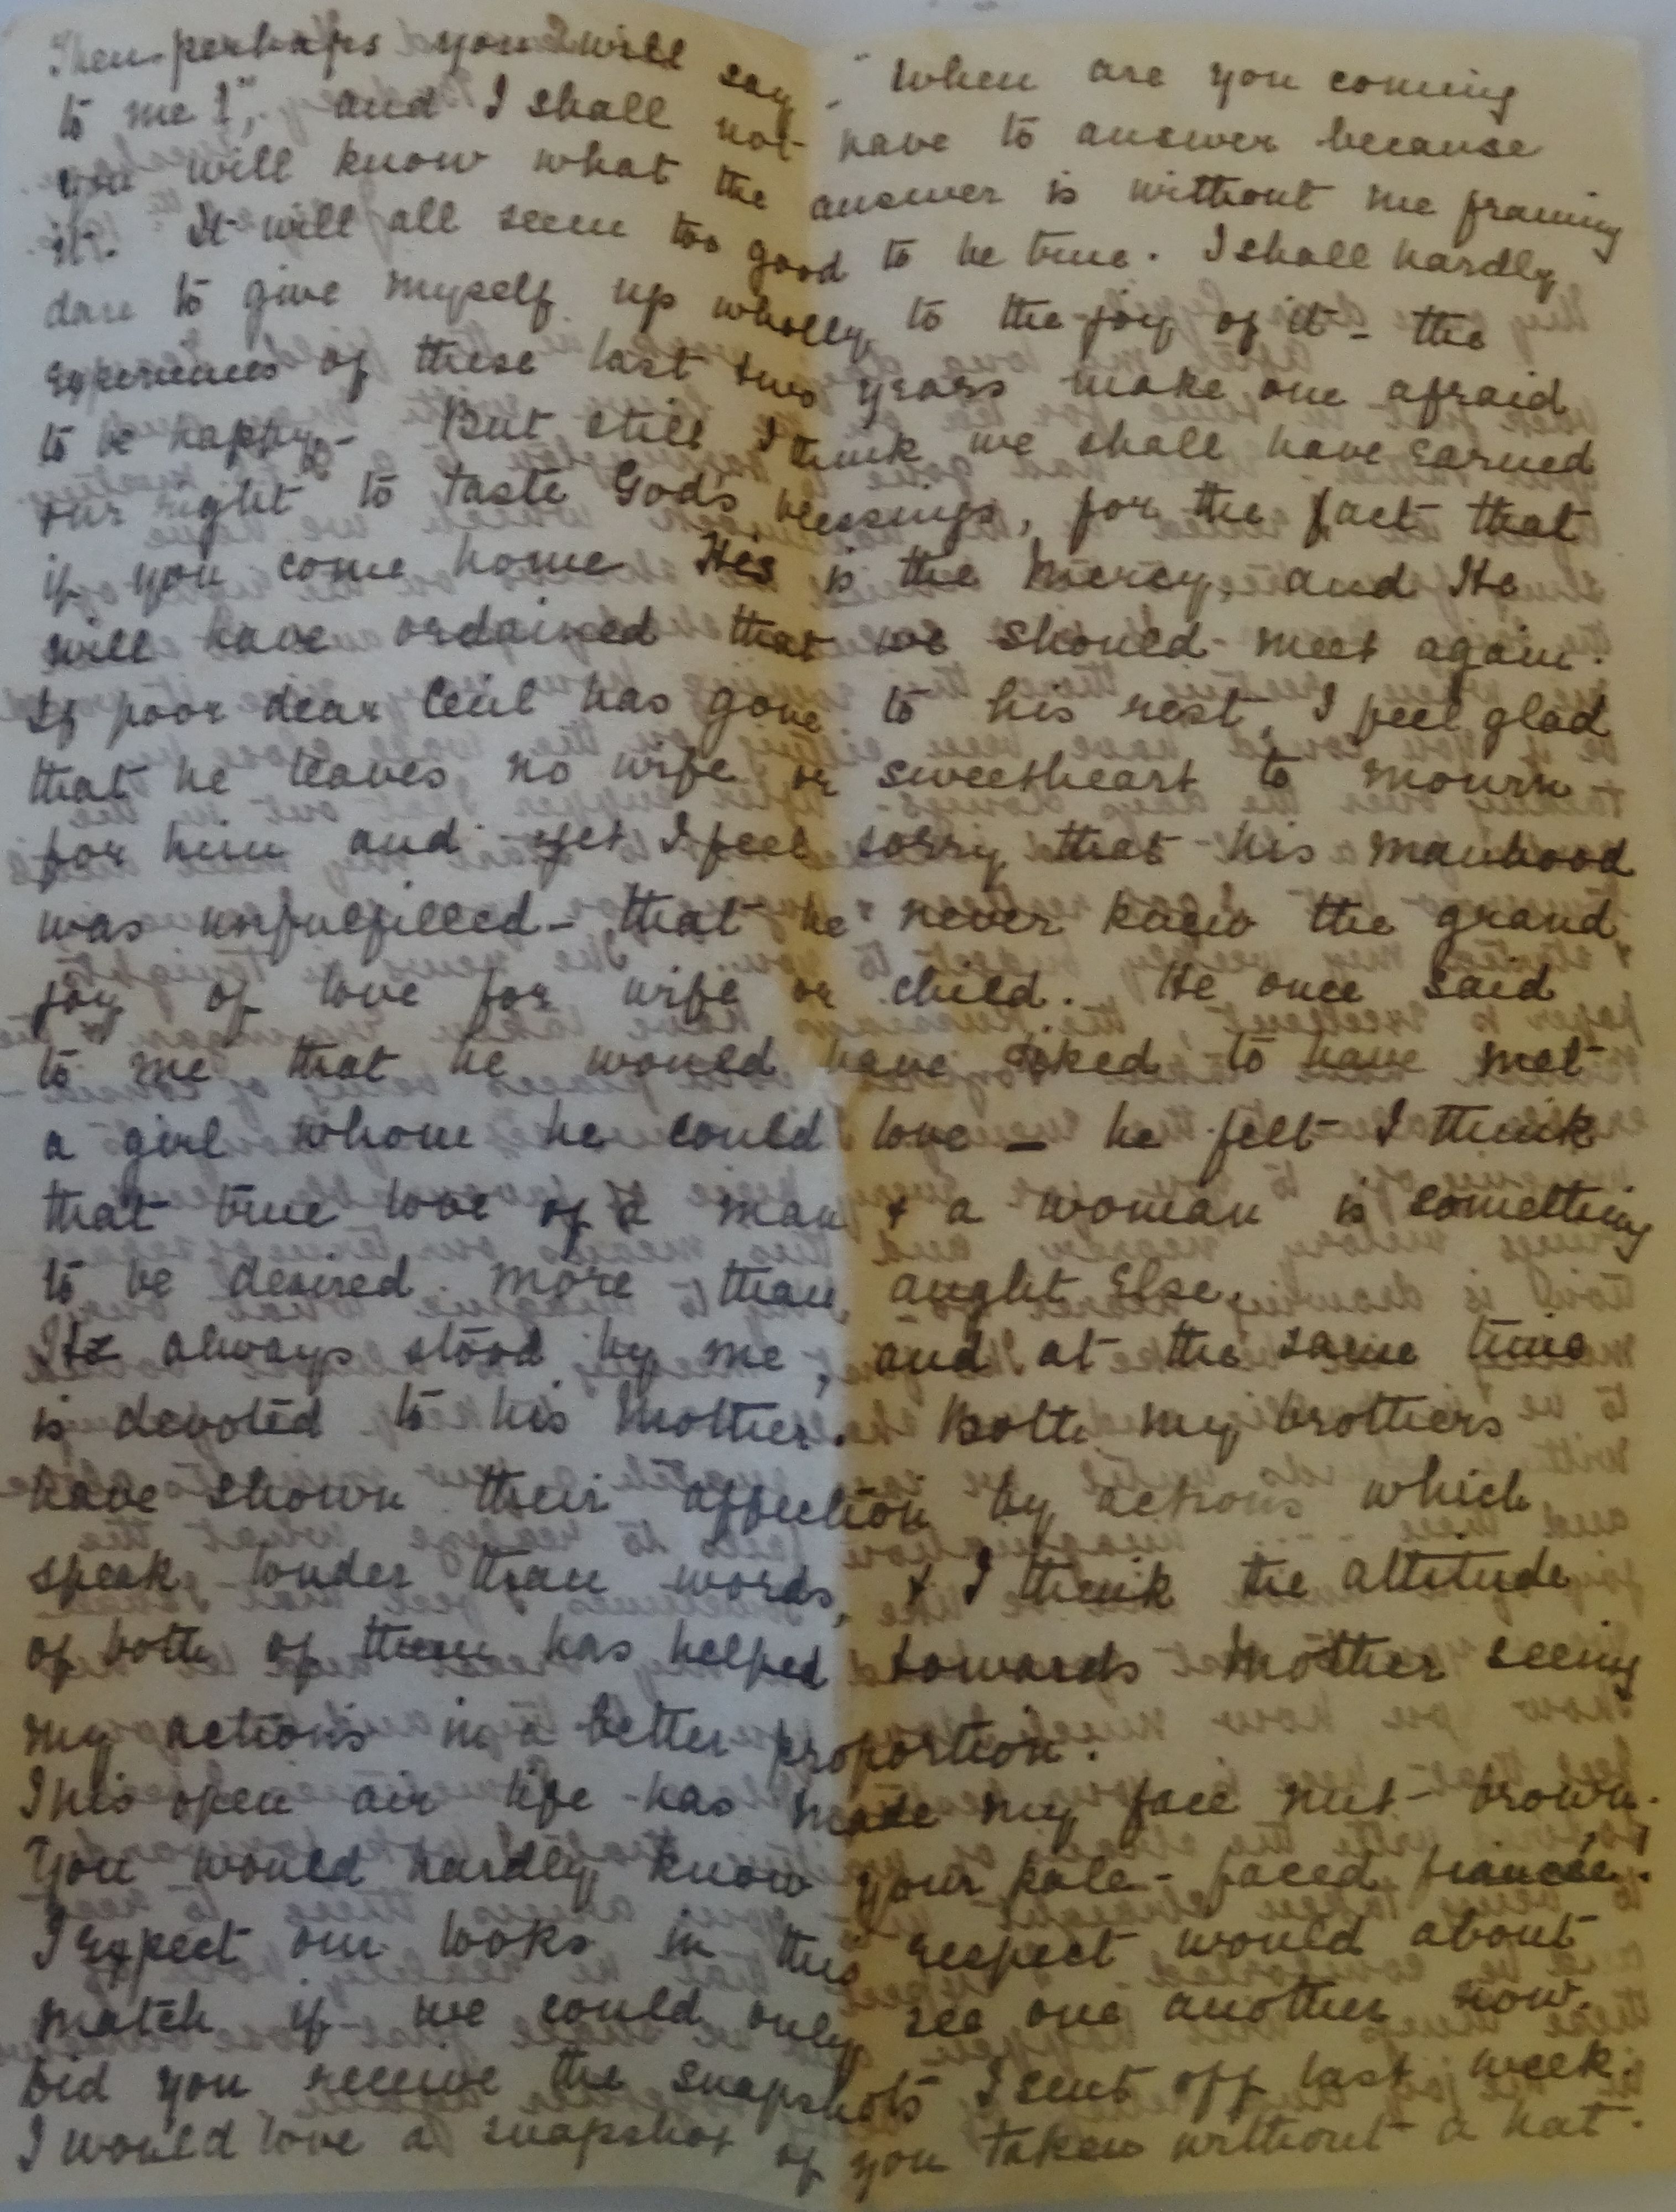 Then perhaps you will say "When are you coming
to me?", and I shall not have to answer because
you will know what the answer is without me framing
it. It will all seem too good to be true. I shall hardly
dare to give myself up wholly to the joy of it – the
experiences of these last two years make one afraid
to be happy – But still I think we shall have earned
our right to taste God's blessings, for the fact that
if you come home His is the Mercy, and He
will have ordained that we should meet again.
If poor dear Cecil has gone to his rest, I feel glad
that he leaves no wife or sweetheart to mourn
for him and yet I feel sorry that his manhood
was unfulfilled – that he never knew the grand
joy of love for wife or child. He once said
to me that he would have liked to have met
a girl whom he could love – he felt I think
that true love of a man & a woman is something
to be desired more than aught else.
He always stood by me, and at the same time
is devoted to his Mother. Both my brothers
have shown their affection by actions which
speak louder than words, & I think the attitude
of both of them has helped towards Mother seeing
my actions in a better proportion.
This open air life has made my face nut-brown.
You would hardly know your pale-faced fiancée.
I expect our looks in this respect would about
match if we could only see one another now.
Did you receive the snapshots I sent off last week.
I would love a snapshot of you taken without a hat.